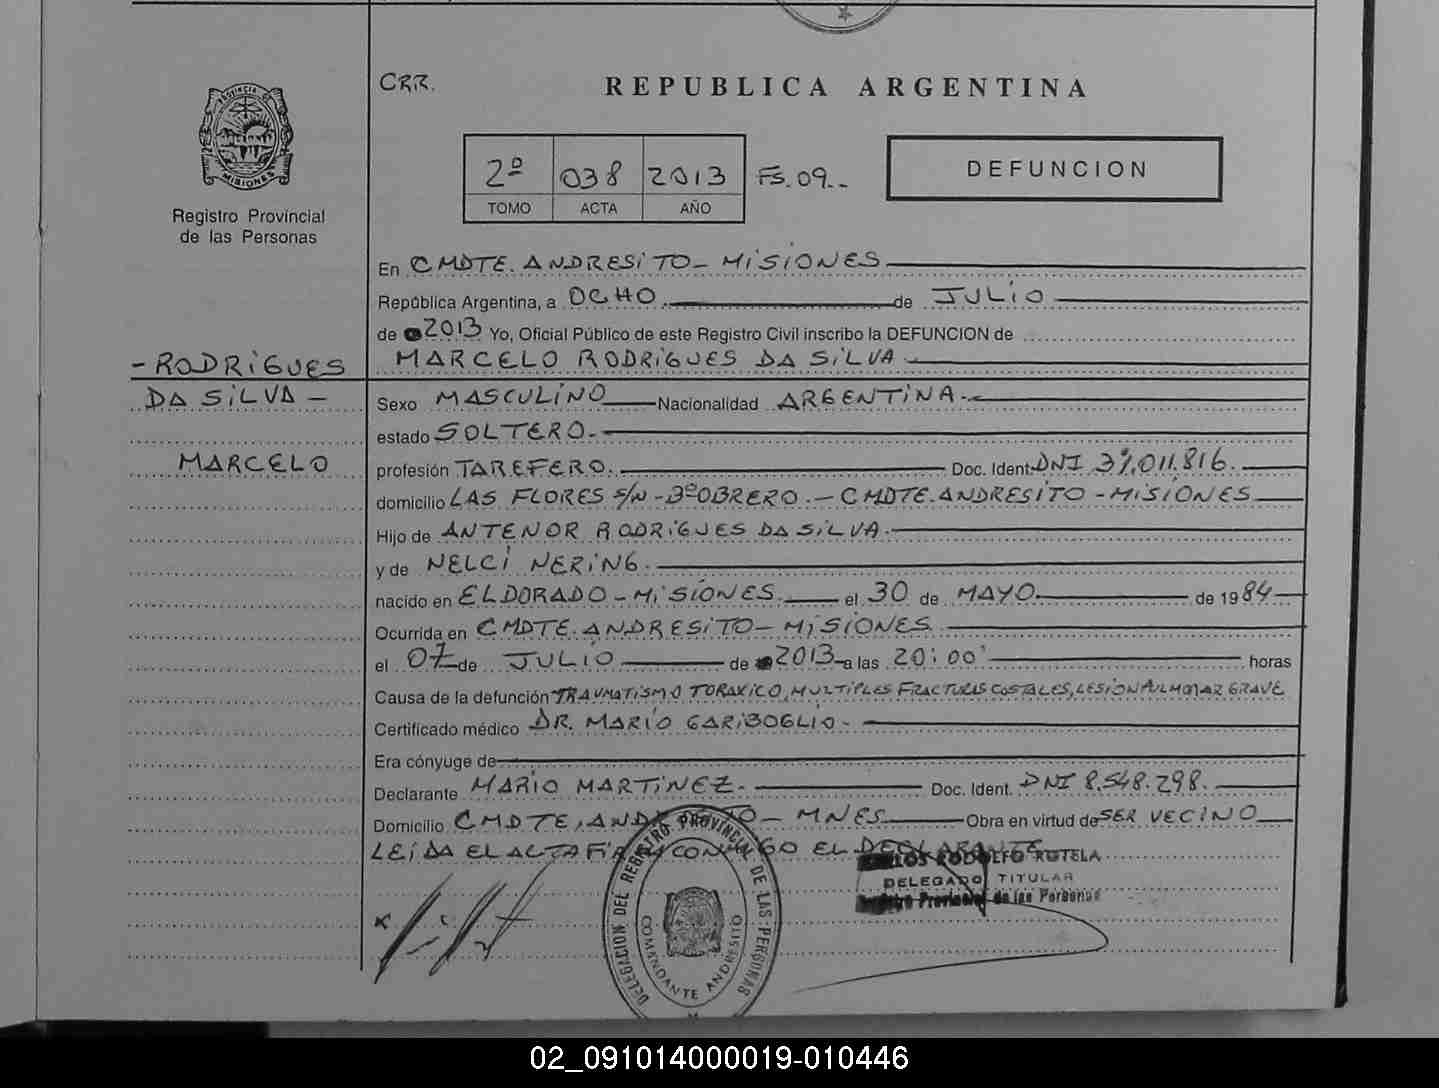 PROVINCIA DE
MISIONES
Registro Provincial
de las Personas
CRR.
REPUBLICA ARGENTINA
2º 038 2013 FS. 09..
TOMO ACTA AÑO
DEFUNCION
En CMDTE. ANDRESITO - MISIONES
República Argentina, a OCHO de JULIO
de 2013 Yo, Oficial Público de este Registro Civil inscribo la DEFUNCION de
- RODRIGUES MARCELO RODRIGUES DA SILVA
DA SILVA - Sexo MASCULINO Nacionalidad ARGENTINA.
estado SOLTERO.
MARCELO profesión TAREFERO. Doc. Ident. DNI 011.816.
domicilio LAS FLORES S/N - Bº OBRERO. - CMDTE. ANDRESITO - MISIONES
Hijo de ANTENOR RODRIGUES DA SILVA.
y de NELCI NERING.
nacido en ELDORADO - MISIONES. el 30 de MAYO. de 1984
Ocurrida en CMDTE. ANDRESITO - MISIONES.
el 07 de JULIO de 2013 a las 20:00' horas
Causa de la defunción TRAUMATISMO TORAXICO, MULTIPLES FRACTURAS COSTALES, LESION PULMONAR GRAVE
Certificado médico DR. MARIO GARIBOGLIO.
Era cónyuge de
Declarante MARIO MARTINEZ. Doc. Ident. DNI 8.548.298.
Domicilio CMDTE. ANDRESITO - MNES. Obra en virtud de SER VECINO
LEIDA EL ACTA FIRMA CONMIGO EL DECLARANTE
CARLOS RODOLFO ROTELA
DELEGADO TITULAR
Registro Provincial de las Personas
DELEGACION DEL REGISTRO PROVINCIAL DE LAS PERSONAS
COMANDANTE ANDRESITO
02_091014000019-010446